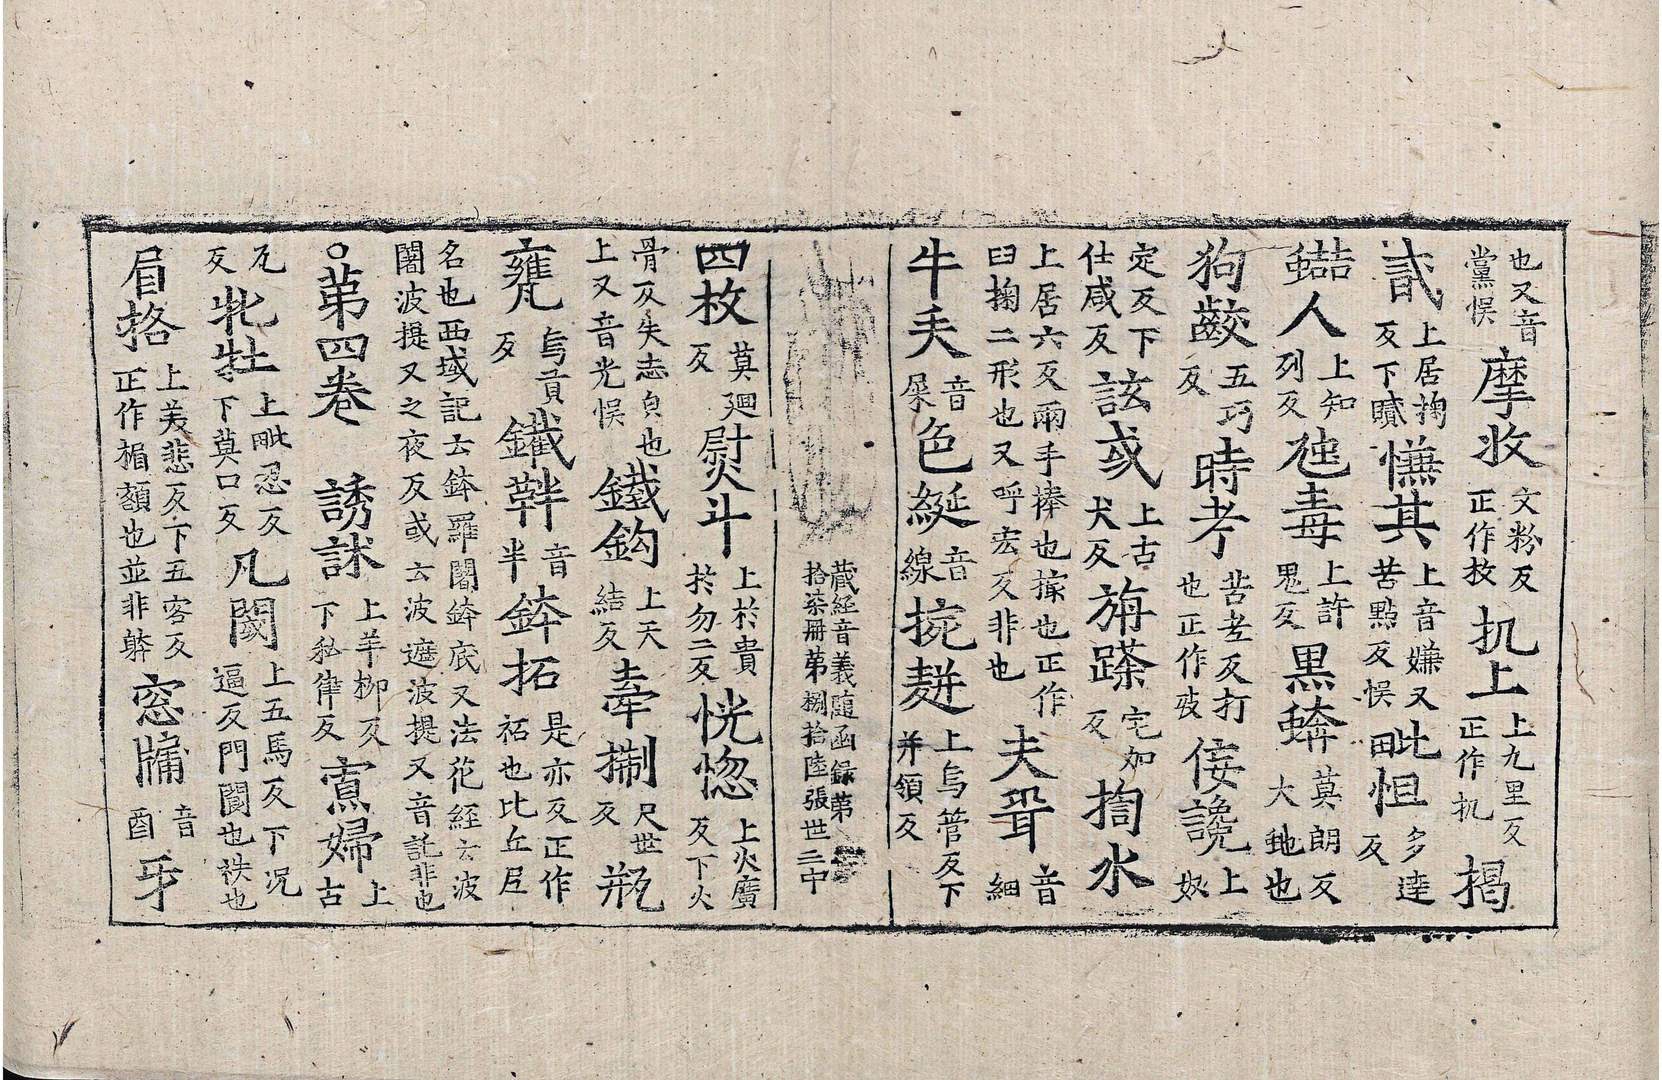 也又音黨悞摩收文粉反正作抆扤上上九里反正作机揭
貳上居掬反下贜㦓其上音嫌又苦點反悞毗怛多達反
蛣人上知列反虺毒上許鬼反黒蟒莫朗反大虵也
狗齩五巧反時考苦老反打也正作攷侫讒上奴
定反下仕咸反該㦯上古犬反旃蹂宅如反掬水
上居六反兩手捧也㨿也正作臼掬二形也又呼宏反非也夫聟音細
牛𡗗音屎色綖音線捥䴵上烏管反下并領反
藏經音義随函録第拾柒冊苐捌拾陸張世三中
四枚莫迴反熨斗上扵貴扵勿二反恍惚上火廣反下火
骨反失志皃也上又音光悞鐵鈎上天結反牽𢱢尺世反瓶
甕烏貢反鐵𨋢音半鉢拓是亦反正作祏也比丘尼
名也西域記云鉢羅闍鉢底又法花經云波闍波提又之夜反或云波遮波提又音託非也
○苐四卷　誘訹上羊柳反下私律反寡婦上古
瓦反牝牡上毗忍反下莫口反凡閿上五馬反下况逼反門閫也秩也
眉挌上美悲反下五客反正作楣額也並非躰窓牖音酉牙